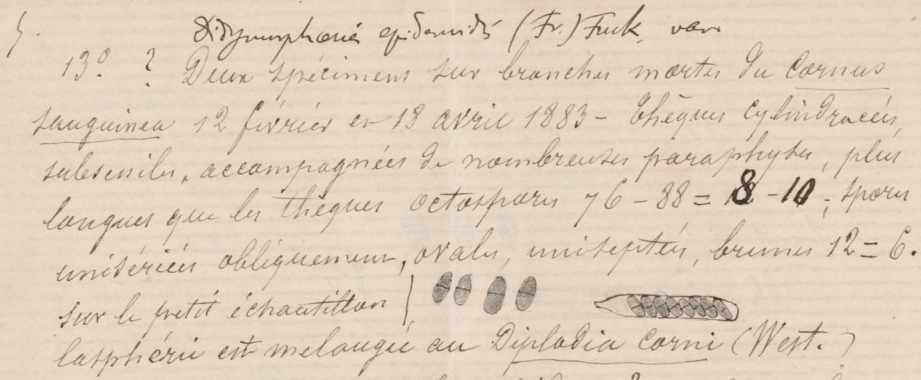 5. Didymosphaeria epidermidis (Fr.) Fuck, var
13º ? Deux spécimens sur branches mortes du Cornus
sanguinea 12 février et 18 avril 1883 - Thèques cylindracées,
subsessiles, accompagnées de nombreuses paraphyses, plus
longues que les thèques octospores 76 - 88 = 8 - 10 ; spores
unisériées obliquement, ovales, uniseptées, brunes 12 = 6.
sur le petit échantillon
la sphérie est melangée au Diplodia Corni (West.)